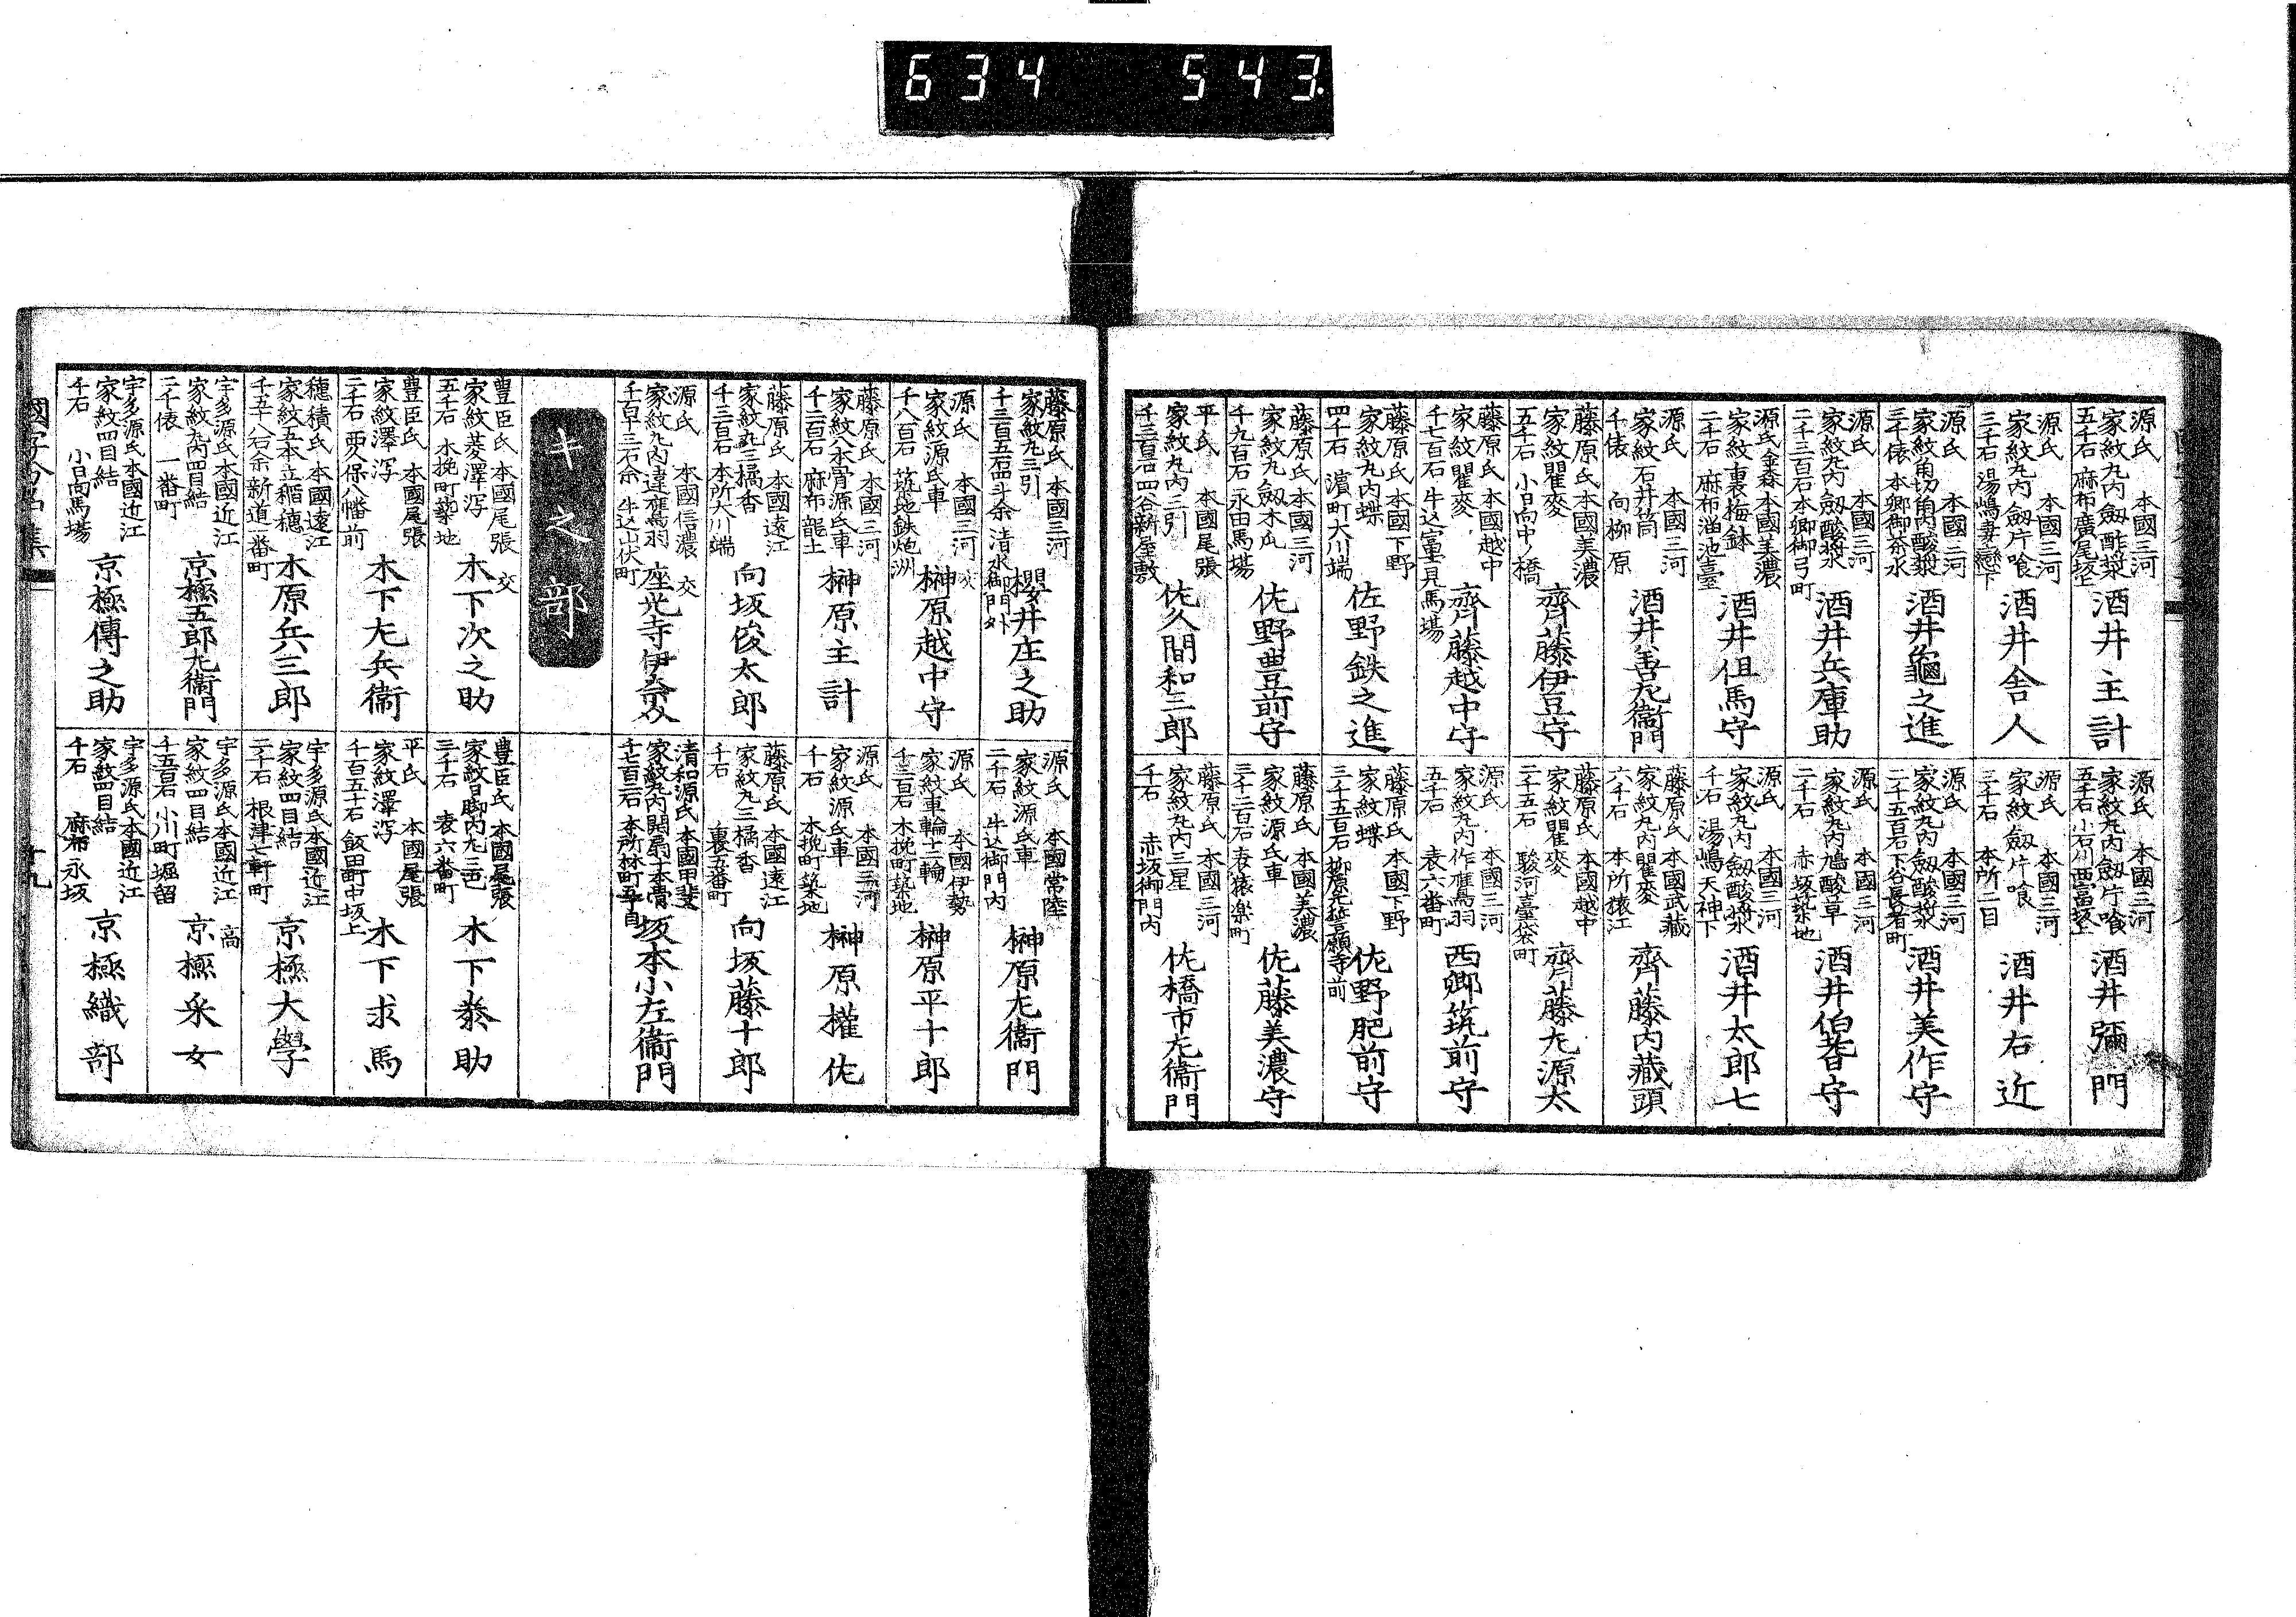 634 543
源氏 本國三河
家紋丸内劔酢漿
五千石 麻布廣尾坂上
酒井主計
源氏 本國三河
家紋丸内劔片喰
三千石 湯嶋妻戀下
酒井舎人
源氏 本國三河
家紋角切角内酸漿
三千俵 本郷御茶水
酒井龜之進
源氏 本國三河
家紋丸内劔酸漿
二千三百石 本郷御弓町
酒井兵庫助
源氏金森 本國美濃
家紋裏梅鉢
二千石 麻布溜池臺
酒井但馬守
源氏 本國三河
家紋石井筒
千俵 向柳原
酒井善左衞門
藤原氏 本國美濃
家紋瞿麥
五千石 小日向中ノ橋
齊藤伊豆守
藤原氏 本國越中
家紋瞿麥
千七百石 牛込富士見馬場
齊藤越中守
藤原氏 本國下野
家紋丸内蝶
四千石 濱町大川端
佐野鉄之進
藤原氏 本國三河
家紋丸劔木瓜
千九百石 永田馬場
佐野豊前守
平氏 本國尾張
家紋丸内三引
千三百石 四谷新屋敷
佐久間和三郎
源氏 本國三河
家紋丸内劔片喰
五千石 小石川西富坂上
酒井彌門
源氏 本國三河
家紋劔片喰
三千石 本所二目
酒井右近
源氏 本國三河
家紋丸内劔酸漿
二千五百石 下谷長者町
酒井美作守
源氏 本國三河
家紋丸内鳩酸草
二千石 赤坂築地
酒井伯耆守
源氏 本國三河
家紋丸内劔酸漿
千石 湯嶋天神下
酒井太郎七
藤原氏 本國武藏
家紋丸内瞿麥
六千石 本所猿江
齊藤内藏頭
藤原氏 本國越中
家紋瞿麥
二千五石 駿河臺袋町
齊藤左源太
源氏 本國三河
家紋丸内作鷹羽
五千石 表六番町
西郷筑前守
藤原氏 本國下野
家紋蝶
三千五百石 柳原元誓願寺前
佐野肥前守
藤原氏 本國美濃
家紋源氏車
三千二百石 表猿楽町
佐藤美濃守
藤原氏 本國三河
家紋丸内三星
千石 赤坂御門内
佐橋市左衞門
藤原氏 本國三河
家紋丸三引
千三百五石四斗余 清水御門外
櫻井庄之助
源氏 本國三河
家紋源氏車
千八百石 筑地鉄炮洲
榊原越中守
藤原氏 本國三河
家紋八本骨源氏車
千二百石 麻布龍土
榊原主計
藤原氏 本國遠江
家紋丸三橘香
千三百石 本所大川端
向坂俊太郎
源氏 本國信濃 交
家紋丸内違鷹羽
千四百十三石余 牛込山伏町
座光寺伊奈丞
キ之部
豊臣氏 本國尾張 交
家紋菱澤泻
五千石 木挽町築地
木下次之助
豊臣氏 本國尾張
家紋澤泻
二千石 西久保八幡前
木下左兵衞
穂積氏 本國遠江
家紋五本立稲穂
千五十八石余 新道一番町
木原兵三郎
宇多源氏 本國近江
家紋丸内四目結
二千俵 一番町
京極五郎左衞門
宇多源氏 本國近江
家紋四目結
千石 小日向馬場
京極傳之助
源氏 本國常陸
家紋源氏車
二千石 牛込御門内
榊原左衞門
源氏 本國伊勢
家紋車輪十二輪
千三百石 木挽町築地
榊原平十郎
源氏 本國三河
家紋源氏車
千石 木挽町築地
榊原權佐
藤原氏 本國遠江
家紋丸三橘香
千石 裏五番町
向坂藤十郎
清和源氏 本國甲斐
家紋丸内開扇十本骨
千七百二石 本所林町五丁目
坂本小左衞門
豊臣氏 本國尾張
家紋日脚内九三邑
三千石 表六番町
木下泰助
平氏 本國尾張
家紋澤泻
千百五十石 飯田町中坂上
木下求馬
宇多源氏 本國近江
家紋四目結
二千石 根津七軒町
京極大學
宇多源氏 本國近江
家紋四目結
千五百石 小川町堀留
高
京極采女
宇多源氏 本國近江
家紋四目結
千石 麻布永坂
京極織部
國字分名集
十九